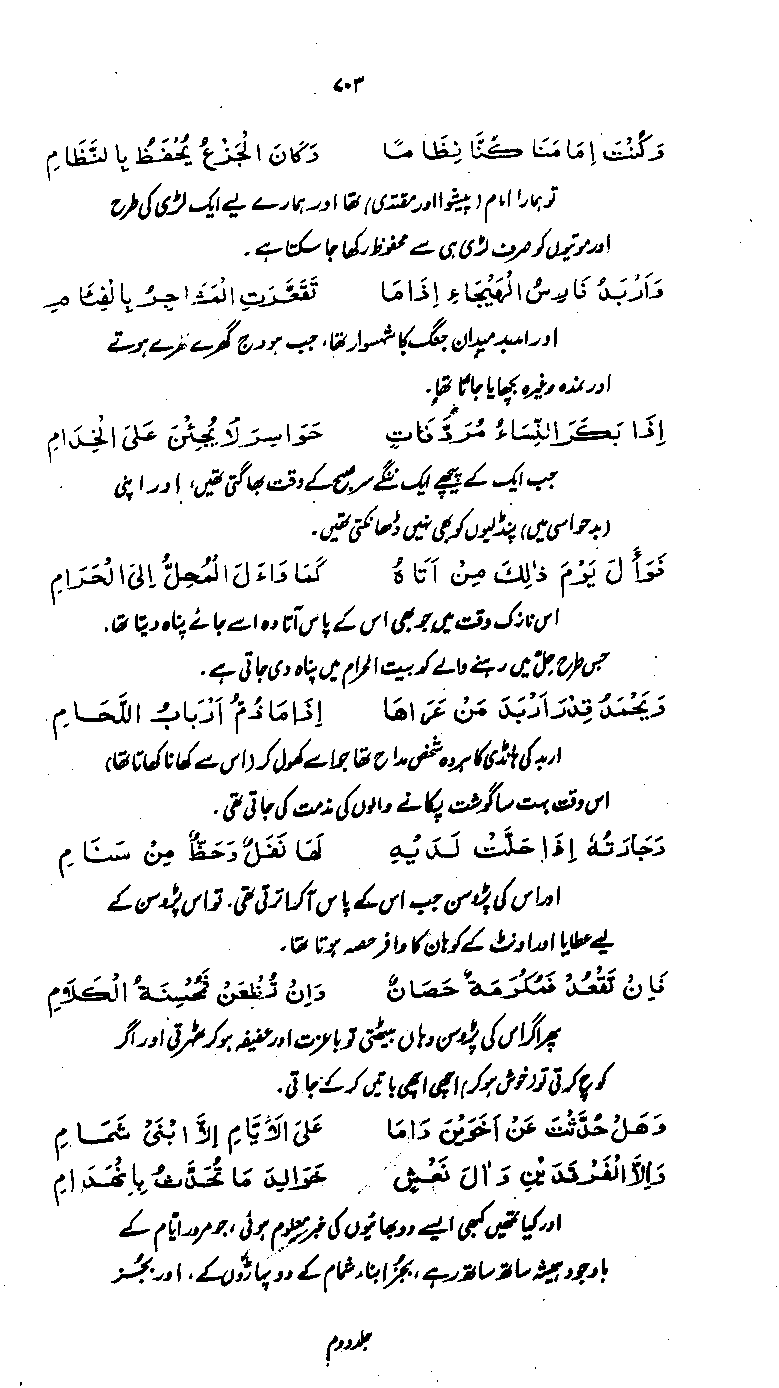 ۷۰۳
وَكُنْتَ اِمَامَنَا كُنَّا نِظَامًا وَكَانَ الْجَزْعُ يُحْفَظُ بِالنَّظَامِ
تو ہمارا امام (پیشوا اور مقتدی) تھا اور ہمارے لیے ایک لڑی کی طرح
اور موتیوں کو صرف لڑی ہی سے محفوظ رکھا جا سکتا ہے۔
وَاَرْبَدُ فَارِسُ الْهَيْجَاءِ اِذَا مَا تَقَعَّرَتِ الْمَشَاجِرُ بِالْفِئَامِ
اور اربد میدان جنگ کا شہسوار تھا، جب ہودج گھرے ہوتے
اور نمدہ وغیرہ بچھایا جاتا تھا۔
اِذَا بَكَرَ النِّسَاءُ مُرَدَّفَاتٍ حَوَاسِرَ لَا يُجِئْنَ عَلَى الْخِدَامِ
جب ایک کے پیچھے ایک ننگے سر صبح کے وقت بھاگتی تھیں، اور اپنی
(بدحواسی میں) پنڈلیوں کو بھی نہیں ڈھانکتی تھیں۔
فَوَأَلَ يَوْمَ ذٰلِكَ مِنْ اَتَاهُ كَمَا وَاءَلَ الْمُحِلُّ اِلَى الْحَرَامِ
اس نازک وقت میں جو بھی اس کے پاس آتا وہ اسے جائے پناہ دیتا تھا۔
جس طرح حِلّ میں رہنے والے کو بیت الحرام میں پناہ دی جاتی ہے۔
وَيَحْمَدُ قِدْرَ اَرْبَدَ مَنْ عَرَاهَا اِذَا مَا ذُمَّ اَرْبَابُ اللَّحَامِ
اربد کی ہانڈی کا ہر وہ شخص مداح تھا جو اسے کھول کر (اس سے کھانا کھاتا تھا)
اس وقت بہت سا گوشت پکانے والوں کی مذمت کی جاتی تھی۔
وَجَارَتُهُ اِذَا حَلَّتْ لَدَيْهِ لَهَا نَفَلٌ وَحَظٌّ مِنْ سَنَامِ
اور اس کی پڑوسن جب اس کے پاس آ کر اترتی تھی۔ تو اس پڑوسن کے
لیے عطایا اور اونٹ کے کوہان کا وافر حصہ ہوتا تھا۔
فَاِنْ تَقْعُدْ فَمُكْرَمَةٌ حَصَانٌ وَاِنْ تُظْعِنْ مُحْسِنَةُ الْكَلَامِ
پھر اگر اس کی پڑوسن وہاں بیٹھتی تو باعزت اور عفیفہ ہو کر ٹھہرتی اور اگر
کوچ کرتی تو (خوش ہو کر) اچھی اچھی باتیں کر کے جاتی۔
وَهَلْ حُدِّثْتَ عَنْ اَخَوَيْنِ دَامَا عَلَى الْاَيَّامِ اِلَّا ابْنَيْ شَمَامِ
وَاِلَّا الْفَرْقَدَيْنِ وَاٰلَ نَعْشٍ خَوَالِدَ مَا تُحَدَّثُ بِانْهِدَامِ
اور کیا تمہیں کبھی ایسے دو بھائیوں کی خبر معلوم ہوئی، جو مرور ایام کے
باوجود ہمیشہ ساتھ ساتھ رہے، بجز ابناء شمام کے دو پہاڑوں کے، اور بجز
جلد دوم